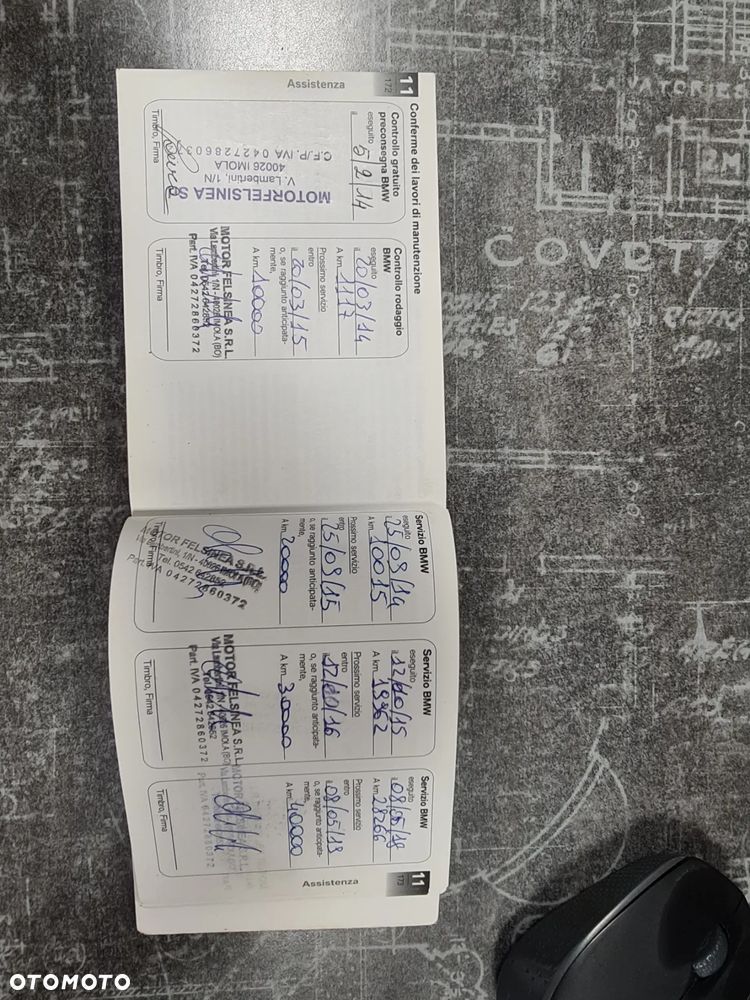 Assistenza
11
172
Conferme dei lavori di manutenzione
Controllo gratuito
preconsegna BMW
eseguito
il 5/2/14
MOTORFELSINEA S
V. Lambertini, 1/N
40026 IMOLA
C.F./P. IVA 042728603
Timbro, Firma
Controllo rodaggio
BMW
eseguito
il 20/03/14
A km. 1117
Prossimo servizio
entro
il 20/03/15
o, se raggiunto anticipata-
mente,
A km. 10000
MOTOR FELSINEA S.R.L.
Via Lambertini, 1/N - 40026 IMOLA (BO)
Tel. 0542
Part. IVA 04272860372
Timbro, Firma
Servizio BMW
eseguito
il 25/08/14
A km. 10015
Prossimo servizio
entro
il 25/08/15
o, se raggiunto anticipata-
mente,
A km. 20000
MOTOR FELSINEA S.R.L.
40026 IMOLA (BO)
Tel. 0542
Part. IVA 04272860372
Timbro, Firma
Servizio BMW
eseguito
il 12/10/15
A km. 19962
Prossimo servizio
entro
il 12/10/16
o, se raggiunto anticipata-
mente,
A km. 30000
MOTOR FELSINEA S.R.L.
IMOLA (BO)
Part. IVA 04272860372
Timbro, Firma
Servizio BMW
eseguito
il 08/05/18
A km. 28266
Prossimo servizio
entro
il 08/05/19
o, se raggiunto anticipata-
mente,
A km. 40000
Part. IVA 04272860372
Timbro, Firma
Assistenza
11
173
LAVATORIES
COVDT
OTOMOTO